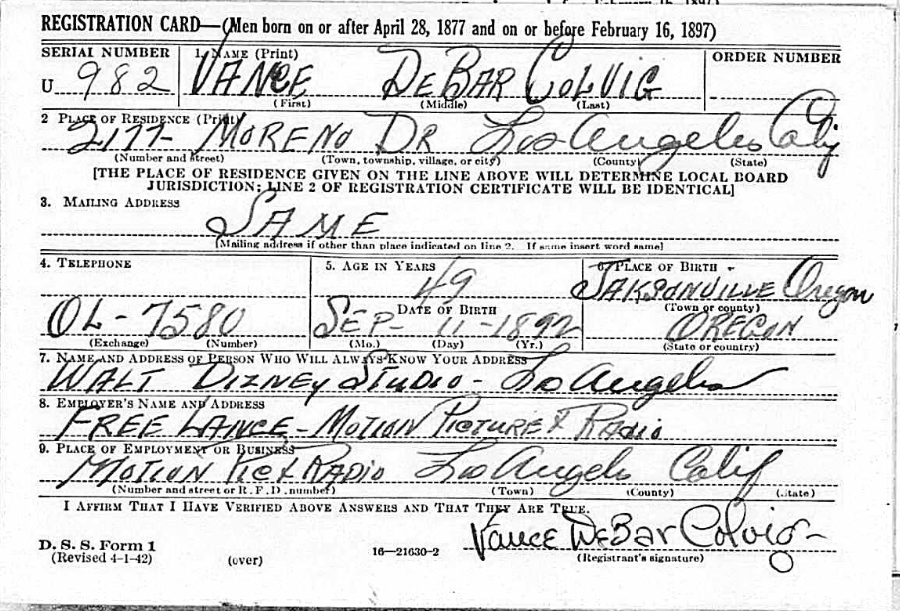 REGISTRATION CARD—(Men born on or after April 28, 1877 and on or before February 16, 1897)
SERIAL NUMBER 1. NAME (Print) ORDER NUMBER
U 982 VANCE DEBAR COLVIG
(First) (Middle) (Last)
2 PLACE OF RESIDENCE (Print)
2177 MORENO DR Los Angeles Calif
(Number and street) (Town, township, village, or city) (County) (State)
[THE PLACE OF RESIDENCE GIVEN ON THE LINE ABOVE WILL DETERMINE LOCAL BOARD
JURISDICTION; LINE 2 OF REGISTRATION CERTIFICATE WILL BE IDENTICAL]
3. MAILING ADDRESS
SAME
(Mailing address if other than place indicated on line 2. If same insert word same)
4. TELEPHONE 5. AGE IN YEARS 6. PLACE OF BIRTH
49 JAKSONVILLE Oregon
DATE OF BIRTH (Town or county)
OL-7580 SEP- 11-1892 OREGON
(Exchange) (Number) (Mo.) (Day) (Yr.) (State or country)
7. NAME AND ADDRESS OF PERSON WHO WILL ALWAYS KNOW YOUR ADDRESS
WALT DIZNEY STUDIO - Los Angeles
8. EMPLOYER'S NAME AND ADDRESS
FREE LANCE - MOTION PICTURE & RADIO
9. PLACE OF EMPLOYMENT OR BUSINESS
MOTION PIC & RADIO Los Angeles Calif
(Number and street or R. F. D. number) (Town) (County) (State)
I AFFIRM THAT I HAVE VERIFIED ABOVE ANSWERS AND THAT THEY ARE TRUE.
Vance DeBar Colvig
D. S. S. Form 1
(Revised 4-1-42) (over) 16—21630-2 (Registrant's signature)